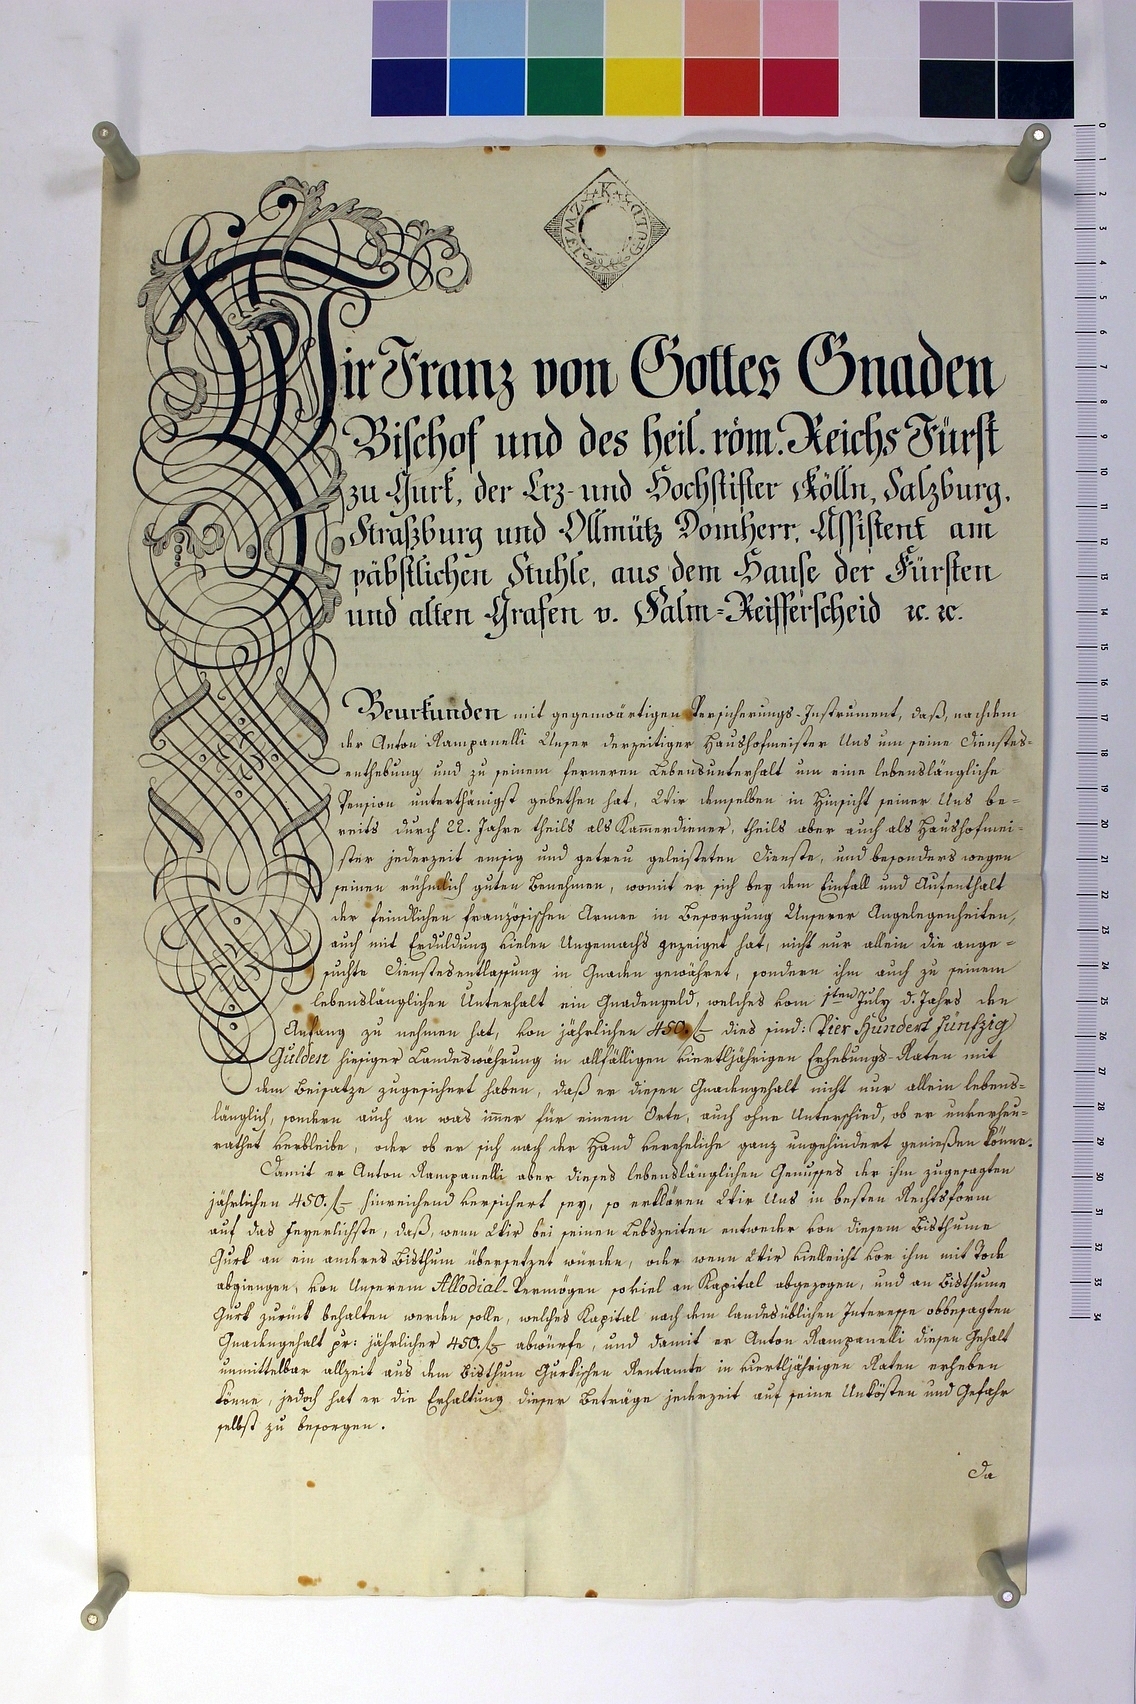 Wir Franz von Gottes Gnaden
Bischof und des heil. röm. Reichs Fürst
zu Gurk, der Erz- und Hochstifter Kölln, Salzburg,
Straßburg und Ollmütz Domherr, Assistent am
päbstlichen Stuhle, aus dem Hause der Fürsten
und alten Grafen v. Salm-Reifferscheid ꝛc. ꝛc.
Beurkunden mit gegenwärtigen Versicherungs-Instrument, daß, nachdem
der Anton Rampanelli Unser derzeitiger Haushofmeister Uns um seine Dienstes-
enthebung und zu seinem ferneren Lebensunterhalt um eine lebenslängliche
Pension unterthänigst gebethen hat, Wir demselben in Hinsicht seiner Uns be-
reits durch 22. Jahre theils als Kam̅erdiener, theils aber auch als Haushofmei-
ster jederzeit emsig und getreu geleisteten Dienste, und besonders wegen
seinen rühmlich guten Benehmen, womit er sich bey dem Einfall und Aufenthalt
der feindlichen französischen Armee in Besorgung Unserer Angelegenheiten,
auch mit Erduldung vielen Ungemachs gezeiget hat, nicht nur allein die ange-
suchte Dienstesentlassung in Gnaden gewähret, sondern ihm auch zu seinem
lebenslänglichen Unterhalt ein Gnadengeld, welches vom 1ten July d. Jahrs den
Anfang zu nehmen hat, von jährlichen 450. f dies sind: Vier Hundert Fünfzig
Gulden hiesiger Landeswährung in allfälligen viertljährigen Erhebungs-Raten mit
dem Beisatze zugesichert haben, daß er diesen Gnadengehalt nicht nur allein lebens-
länglich, sondern auch an was im̅er für einem Orte, auch ohne Unterschied, ob er unverheu-
rathet verbleibe, oder ob er sich nach der Hand vereheliche ganz ungehindert genießen könne.
Damit er Anton Rampanelli aber dieses lebenslänglichen Genusses der ihm zugesagten
jährlichen 450. f hinreichend versichert sey, so erklären Wir Uns in besten Rechtsform
auf das Feyerlichste, daß, wenn Wir bei seinen Lebszeiten entweder von diesem Bisthume
Gurk an ein anderes Bisthum übersetzet würden, oder wenn Wir vielleicht vor ihm mit Tode
abgiengen, von Unserem Allodial-Vermögen soviel an Kapital abgezogen, und an Bisthume
Gurk zurück behalten werden solle, welches Kapital nach dem landesüblichen Interesse obbesagten
Gnadengehalt pr: jährlicher 450. f abwürfe, und damit er Anton Rampanelli diesen Gehalt
unmittelbar allzeit aus dem Bisthum Gurkischen Rentamte in viertljährigen Raten erheben
könne, jedoch hat er die Erhaltung dieser Beträge jederzeit auf seine Unkösten und Gefahr
selbst zu besorgen.
Da